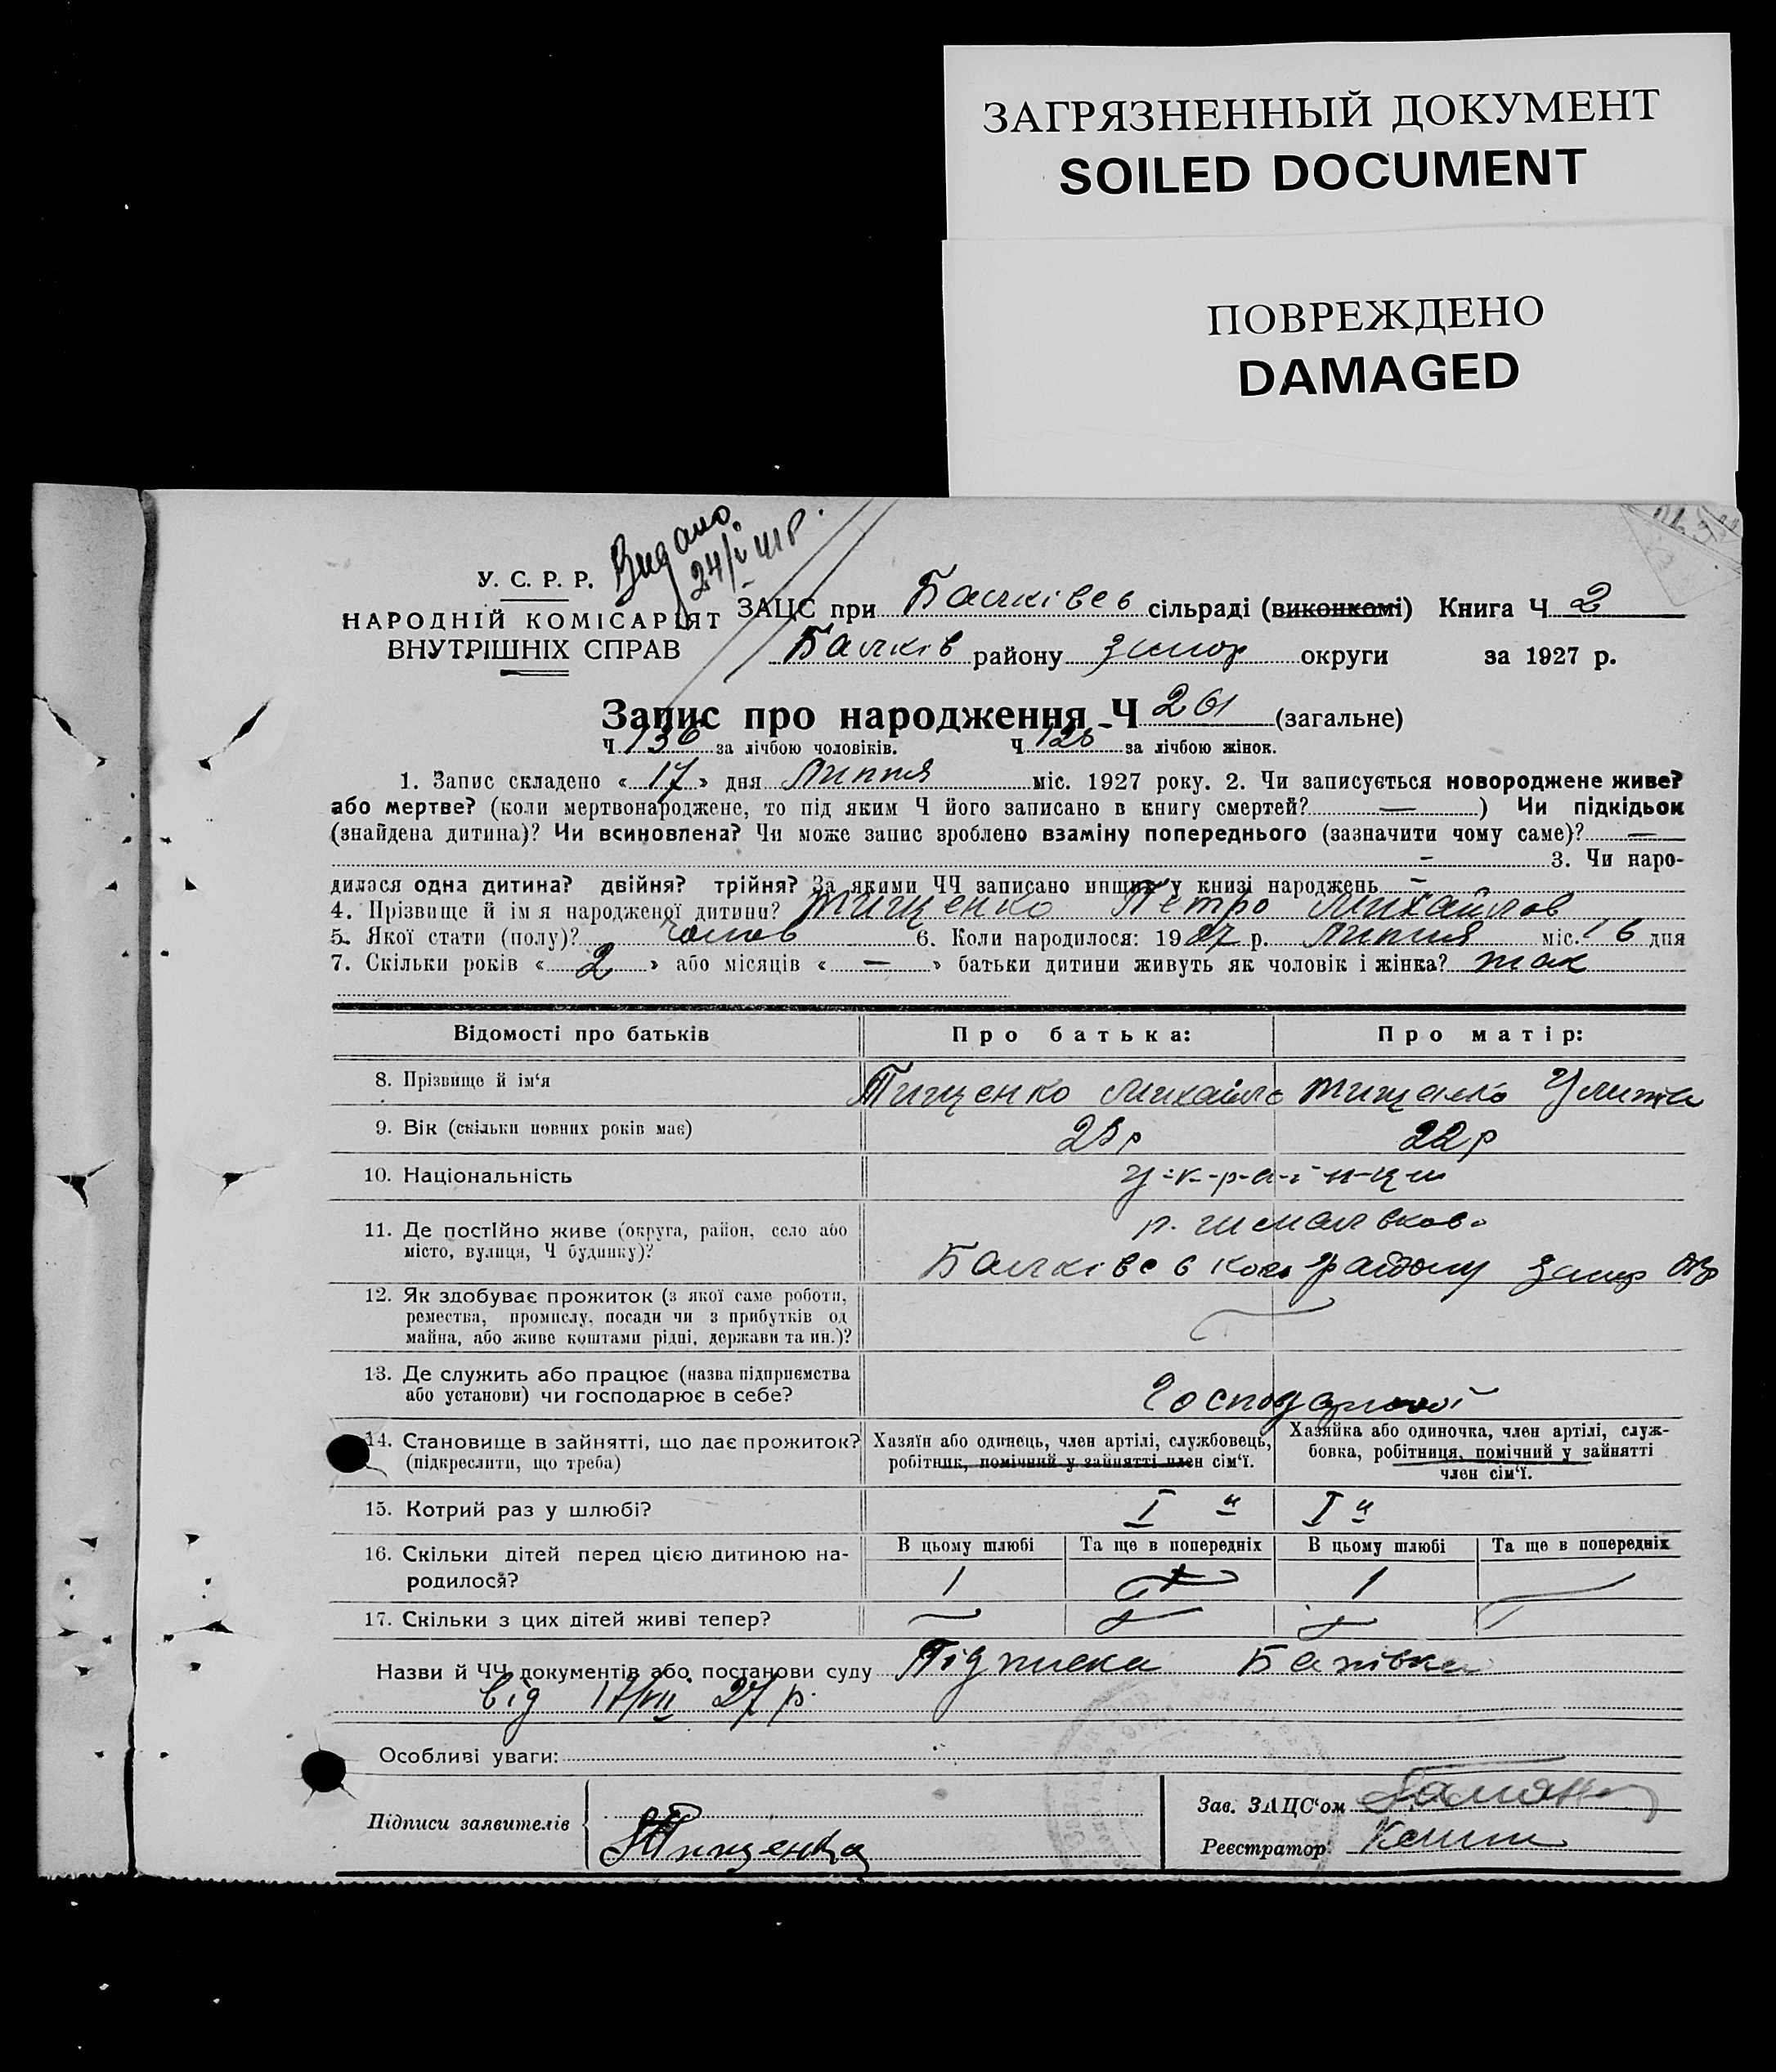 ЗАГРЯЗНЕННЫЙ ДОКУМЕНТ
SOILED DOCUMENT
ПОВРЕЖДЕНО
DAMAGED
Видано
У. С. Р. Р.
НАРОДНІЙ КОМІСАРІЯТ
ВНУТРІШНІХ СПРАВ
ЗАЦС при Балківсв сільраді (виконкомі) Книга Ч 2
Балків району округи за 1927 р.
Запис про народження Ч 261 (загальне)
Ч 136 за лічбою чоловіків. Ч за лічбою жінок.
1. Запис складено « 17 » дня Липня міс. 1927 року. 2. Чи записується новороджене живе?
або мертве? (коли мертвонароджене, то під яким Ч його записано в книгу смертей? — ) Чи підкідьок
(знайдена дитина)? Чи всиновлена? Чи може запис зроблено взаміну попереднього (зазначити чому саме)? —
- 3. Чи наро-
дилася одна дитина? двійня? трійня? За якими ЧЧ записано инших у книзі народжень -
4. Прізвище й ім'я народженої дитини? Тищенко Петро Михайлов
5. Якої стати (полу)? чолов 6. Коли народилося: 1927 р. Липня міс. 16 дня
7. Скільки років « 2 » або місяців « — » батьки дитини живуть як чоловік і жінка? так
Відомості про батьків Про батька: Про матір:
8. Прізвище й ім'я Тищенко Михайло Тищенко Улита
9. Вік (скільки повних років має) 23р 22р
10. Національність у-к-р-а-ї-н-ци
11. Де постійно живе (округа, район, село або
місто, вулиця, Ч будинку)?
Балківсвкого району запор окр
12. Як здобуває прожиток (з якої саме роботи,
ремества, промислу, посади чи з прибутків од
майна, або живе коштами рідні, держави та ин.)?
13. Де служить або працює (назва підприємства
або установи) чи господарює в себе?
14. Становище в зайнятті, що дає прожиток?
(підкреслити, що треба)
Хазяїн або одинець, член артілі, службовець,
робітник, помічний у зайнятті член сім'ї.
Хазяйка або одиночка, член артілі, служ-
бовка, робітниця, помічний у зайнятті
член сім'ї.
15. Котрий раз у шлюбі? I й I й
16. Скільки дітей перед цією дитиною на-
родилося?
В цьому шлюбі Та ще в попередніх В цьому шлюбі Та ще в попередніх
1 1
17. Скільки з цих дітей живі тепер?
Назви й ЧЧ документів або постанови суду Підписка
від 17/VII 27 р.
Особливі уваги:
Підписи заявителів
Тищенко
Зав. ЗАЦС'ом
Реєстратор